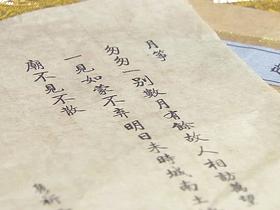 月筝
匆匆一别数月有餘故人相訪萬望
一見如蒙不弃明日未時城南土
廟不見不散